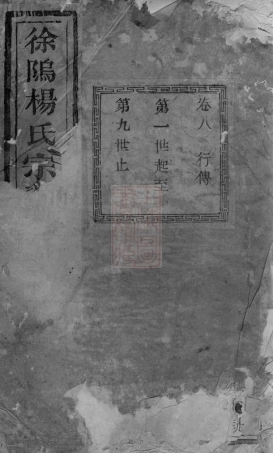 徐鄔楊氏宗
卷八 行傳
第一世起至
第九世止